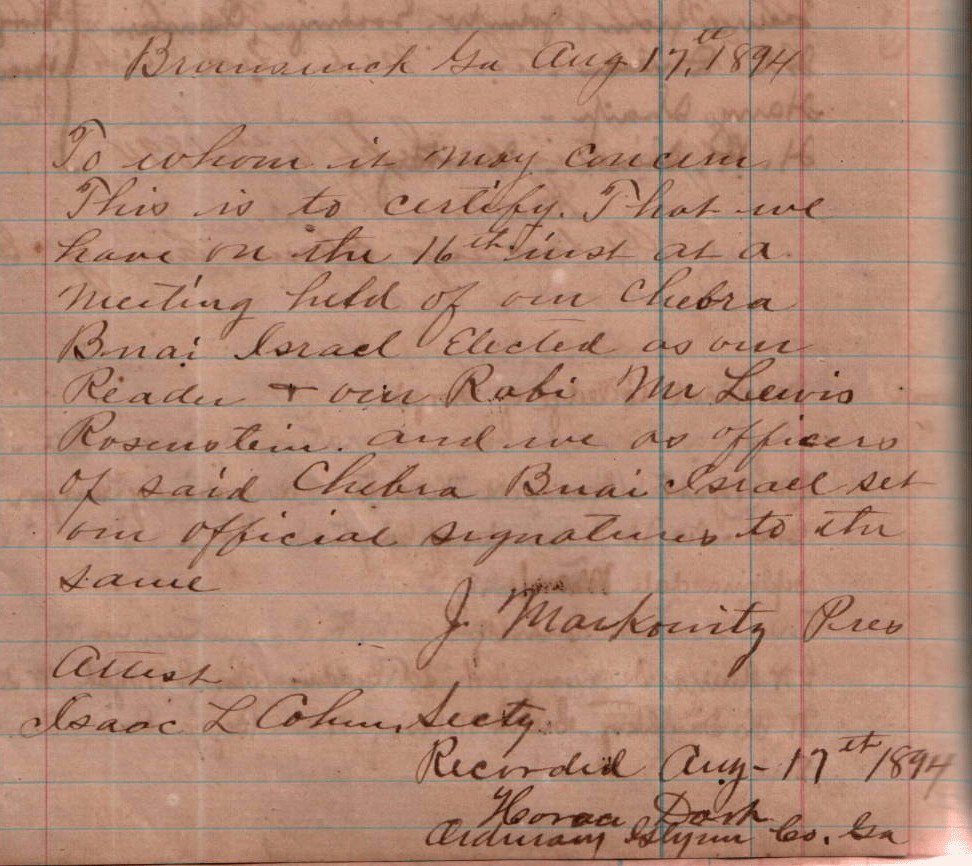 Brunswick Ga Aug 17,th 1894
To whom it may concern
This is to certify. That we
have on the 16th inst at a
meeting held of our Chebra
Bnai Israel Elected as our
Reader + our Rabi Mr Lewis
Rosenstein. and we as officers
of said Chebra Bnai Israel set
our official signatures to the
same
J. Markowitz Pres
Attest
Isaac L Cohen, Secty.
Recorded Aug- 17th 1894
Horace Dart
Ordinary Glynn Co. Ga